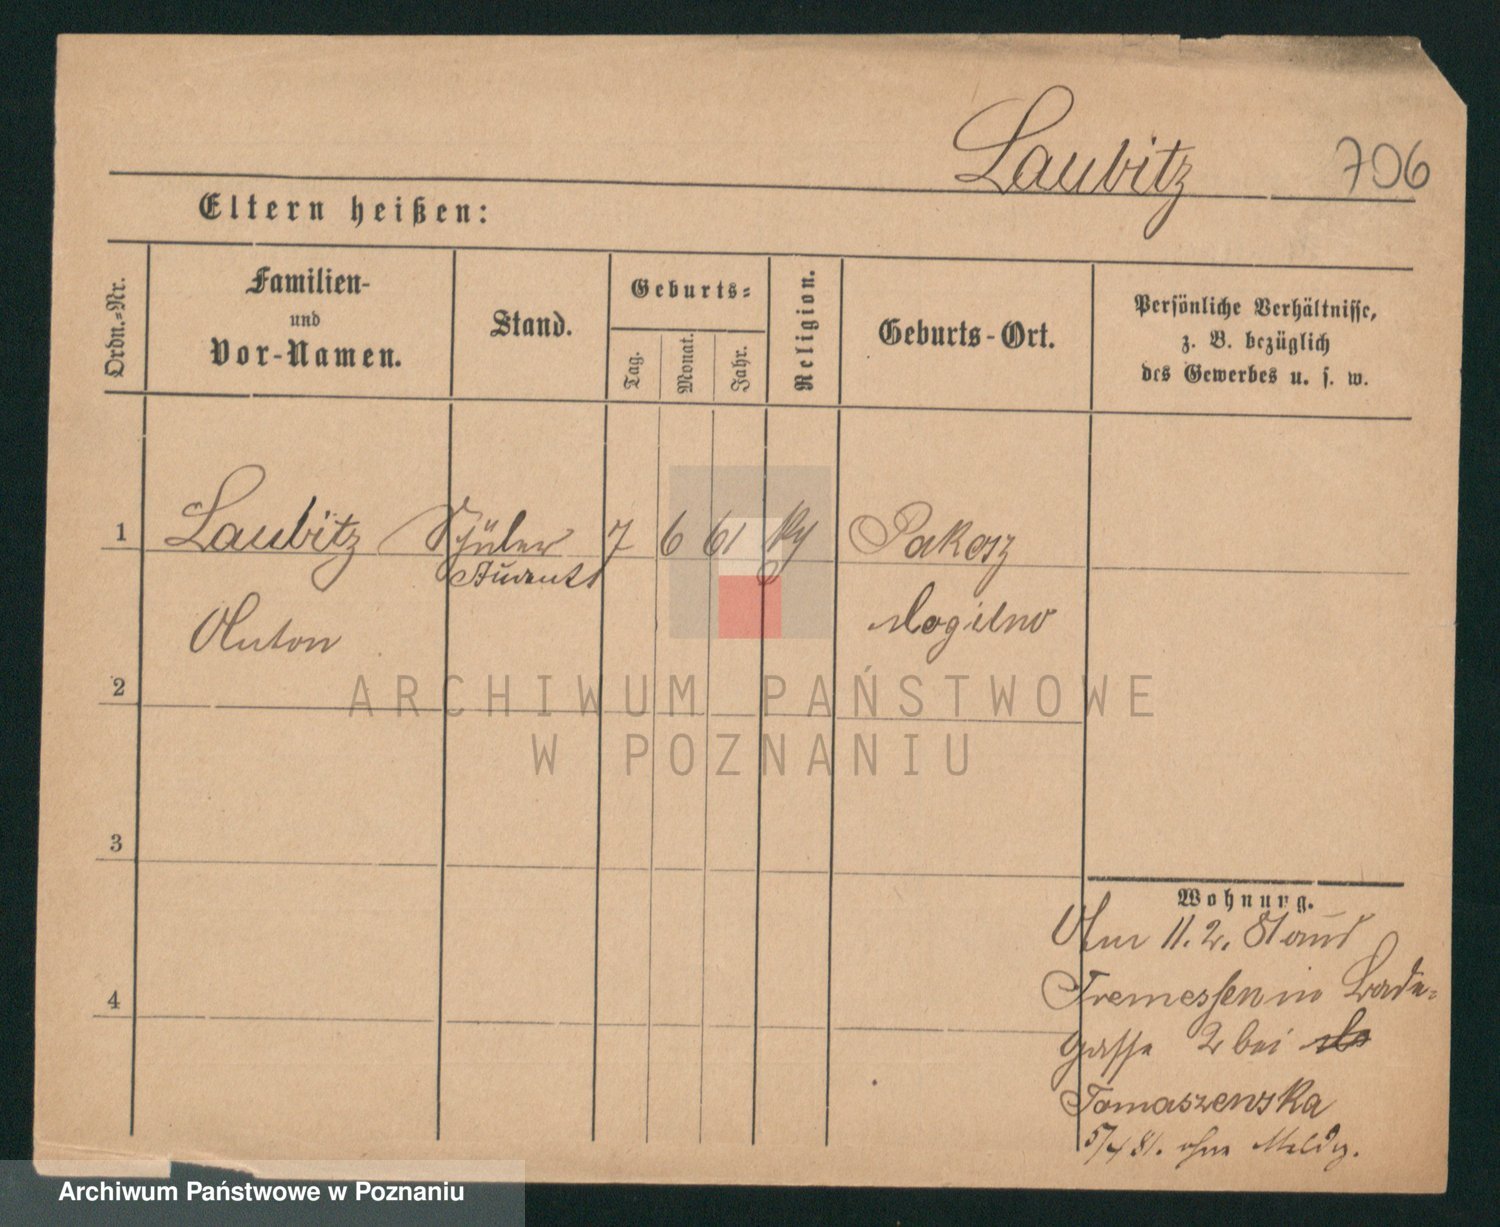 Laubitz 706
Eltern heißen:
Ordn.-Nr.
Familien-
und
Vor-Namen.
Stand.
Geburts-
Tag.
Monat.
Jahr.
Religion.
Geburts-Ort.
Persönliche Verhältnisse,
z. B. bezüglich
des Gewerbes u. s. w.
1 Laubitz Schüler 7 6 61 Pakosz
Student
Anton Mogilno
2
ARCHIWUM PAŃSTWOWE
W POZNANIU
3
Wohnung.
Am 11. 2. 81 aus
Tremessen in Bade-
4
gasse 2 bei
Tomaszewska
5/4 81. ohne Meldg.
Archiwum Państwowe w Poznaniu